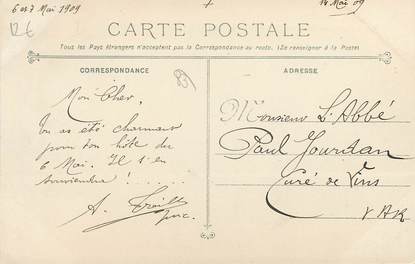 6 et 7 Mai 1909
14 Mai 09
12€
CARTE POSTALE
Tous les Pays étrangers n'acceptent pas la Correspondance au recto. (Se renseigner à la Poste).
CORRESPONDANCE
ADRESSE
83
Mon Cher,
Tu as été charmant
pour ton hôte du
6 Mai. Il s'en
souviendra! .....
A.
Monsieur L'Abbé
Paul Jourdan
Curé de Vins
VAR